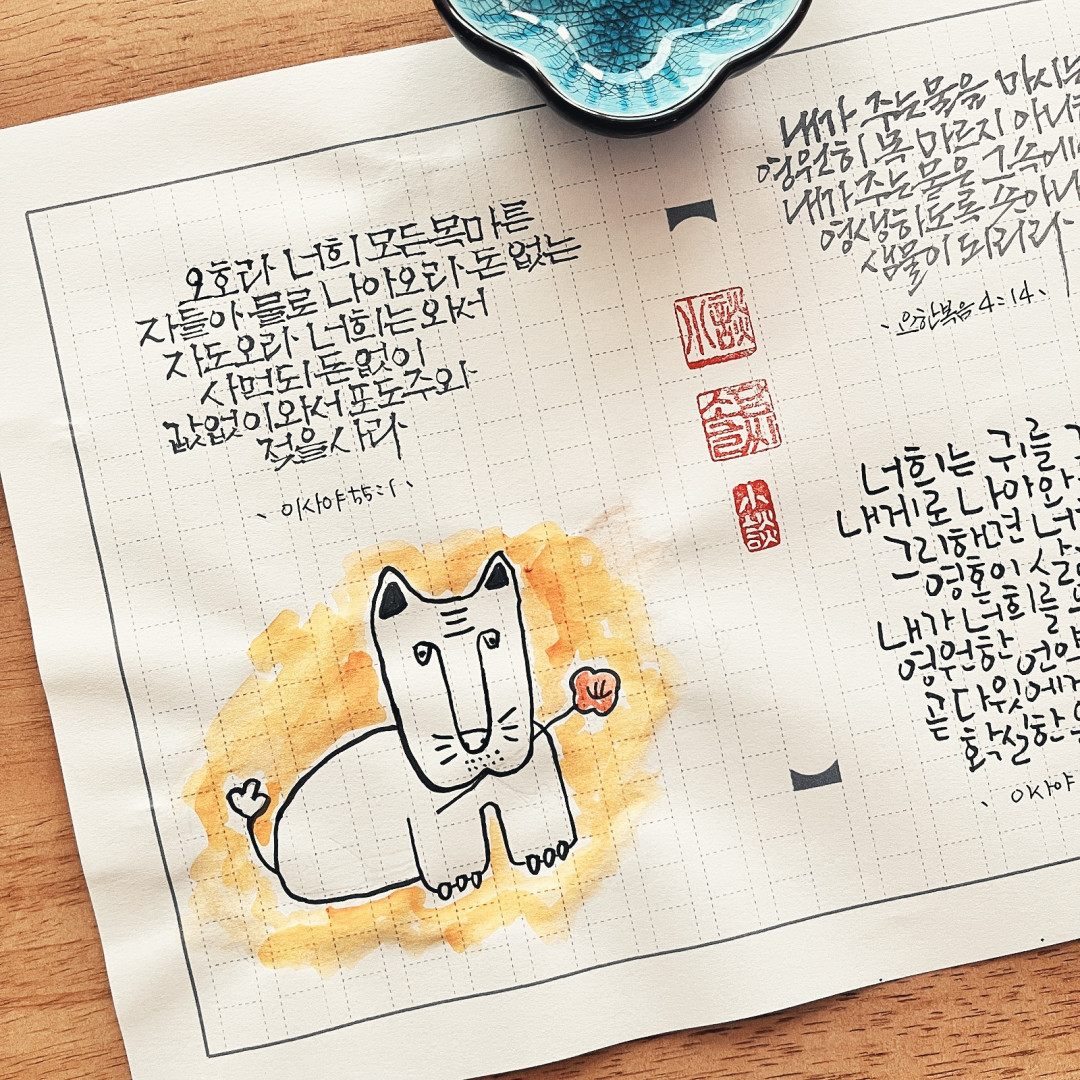 오호라 너희 모든 목마른
자들아 물로 나아오라 돈 없는
자도 오라 너희는 와서
사 먹되 돈 없이
값없이 와서 포도주와
젖을 사라
이사야 55:1
내가 주는 물을 마시는
영원히 목 마르지 아니
내가 주는 물은 그 속에
영생하도록 솟아나
샘물이 되리라
요한복음 4:14
소담글씨
小談
너희는 귀를
내게로 나아와
그리하면 너
영혼이 살
내가 너희를
영원한 언약
곧 다윗에게
확실한
이사야